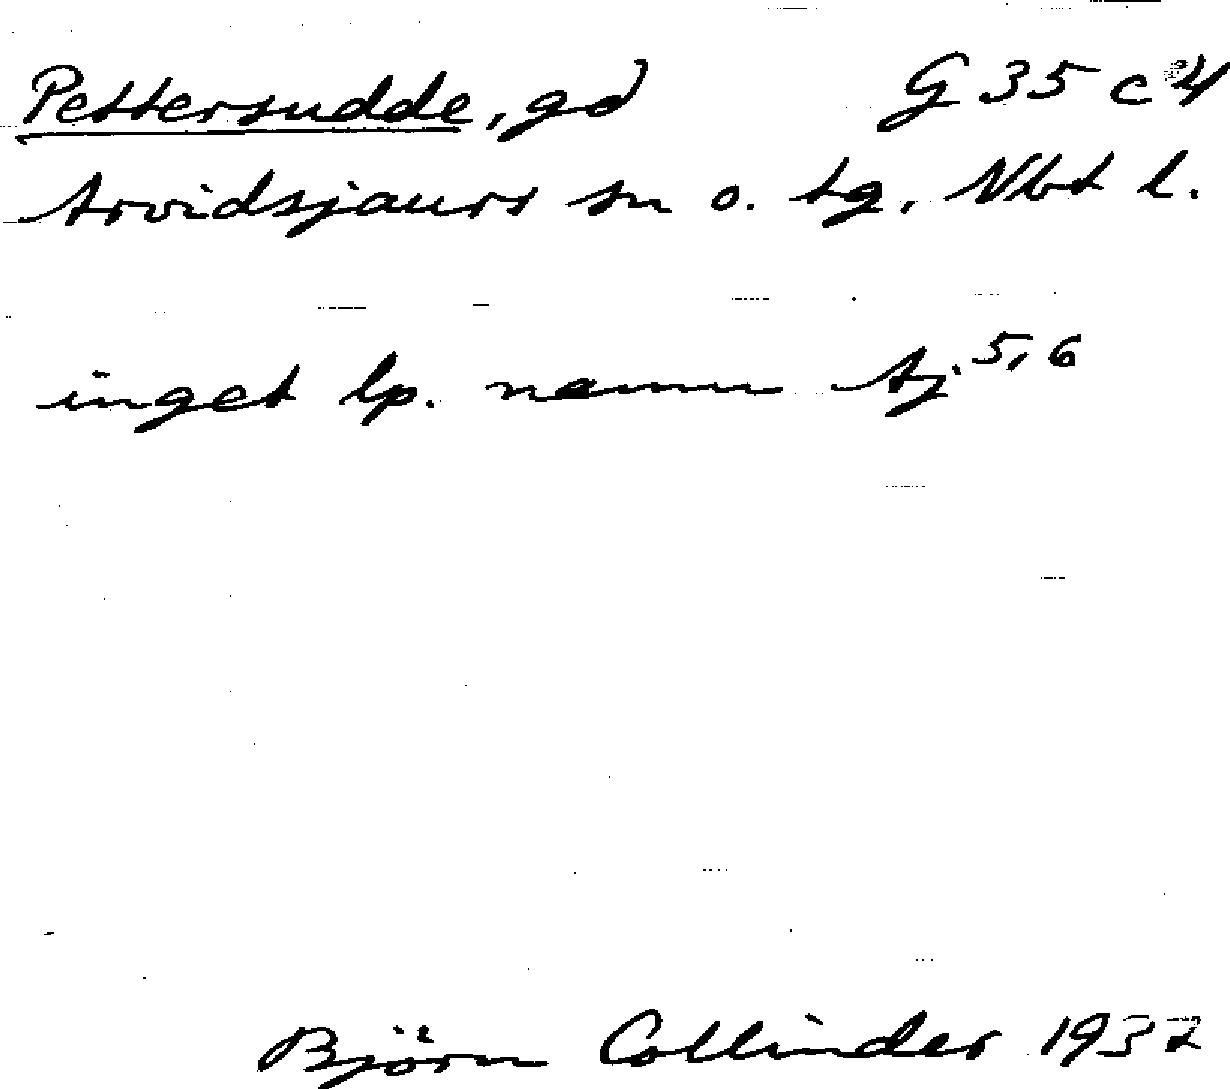 Pettersudde, gd G 35 c 4
Arvidsjaurs sn o. tg, Nbt l.
inget lp. namn Aj. 5, 6
Björn Collinder 1932